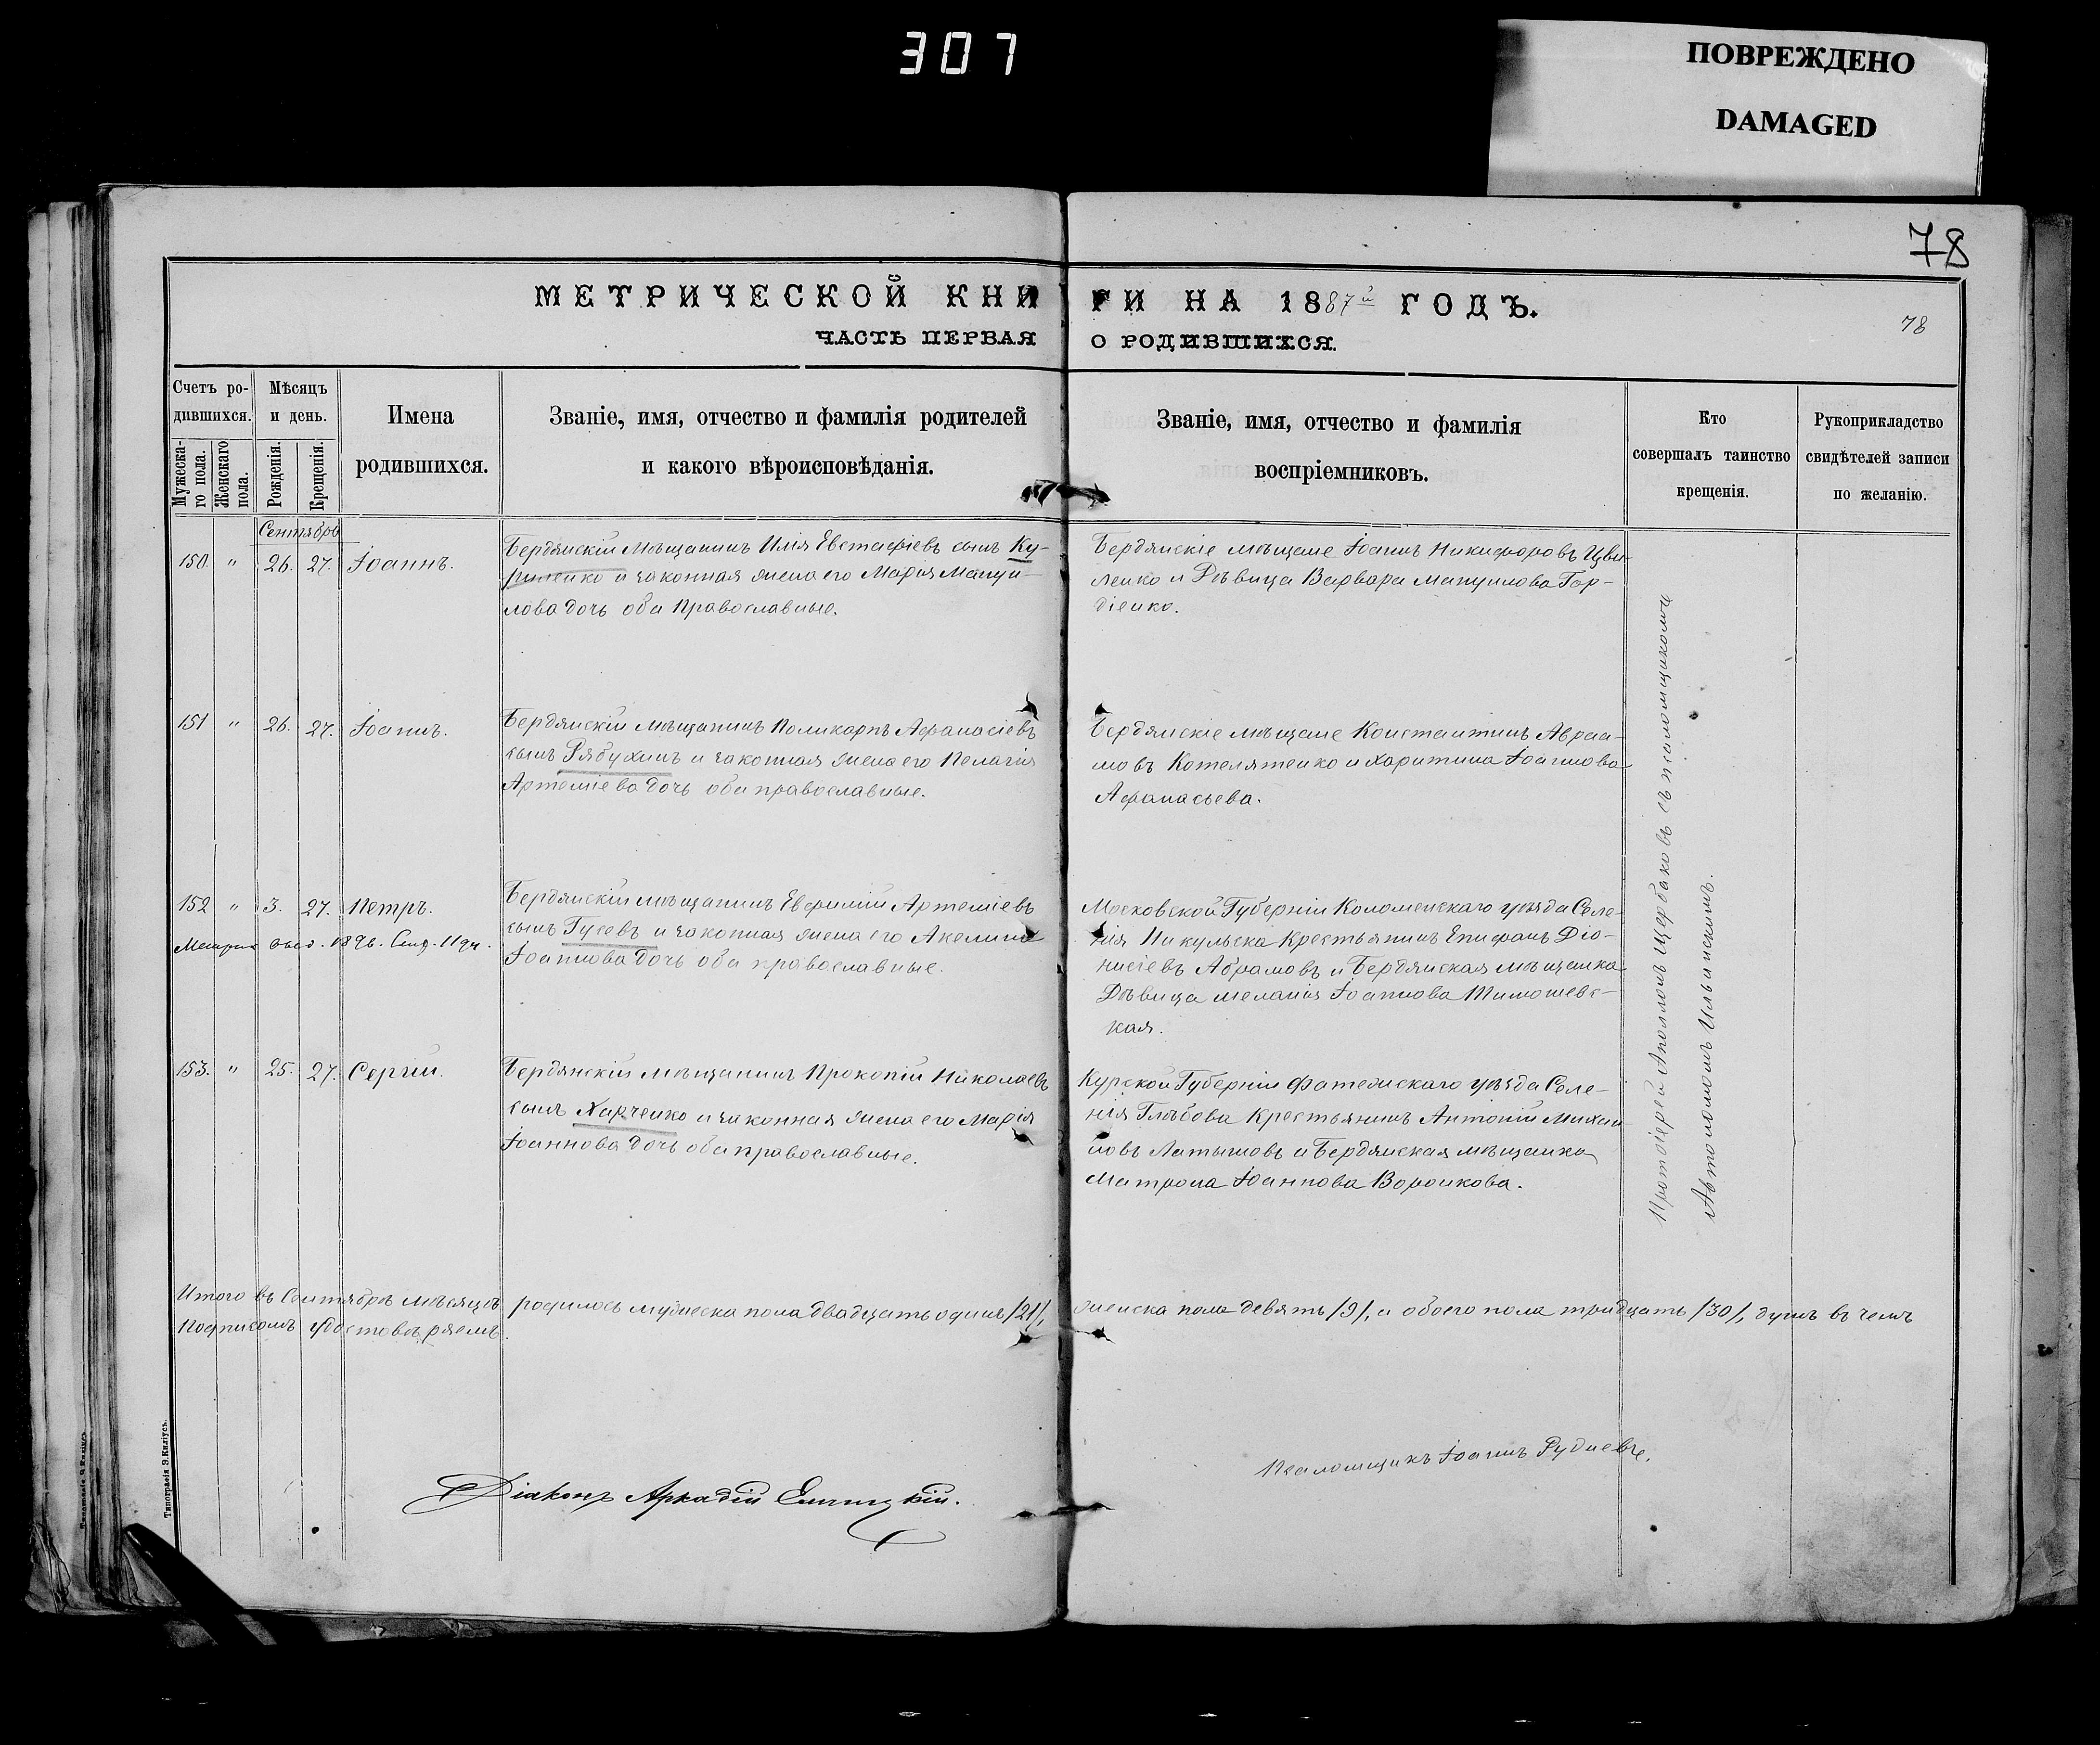 307
ПОВРЕЖДЕНО
DAMAGED
78
МЕТРИЧЕСКОЙ КНИГИ НА 1887й ГОДЪ.
78
ЧАСТЬ ПЕРВАЯ О РОДИВШИХСЯ.
Счетъ ро-
дившихся.
Мужеска-
го пола.
Женскаго
пола.
Мѣсяцъ
и день.
Рожденія.
Крещенія.
Имена
родившихся.
Званіе, имя, отчество и фамилія родителей
и какого вѣроисповѣданія.
Званіе, имя, отчество и фамилія
воспріемниковъ.
Кто
совершалъ таинство
крещенія.
Рукоприкладство
свидѣтелей записи
по желанію.
Сентябрь
150. " 26. 27. Іоаннъ.
Бердянскій мѣщанинъ Илія Евстафіевъ сынъ Ку-
риленко и законная жена его Марія Мануи-
лова дочь оба Православные.
Бердянскіе мѣщане Іоаннъ Никифоровъ Цви-
ленко и Дѣвица Варвара Мануилова Гор-
діенко.
151 " 26. 27. Іоаннъ.
Бердянскій мѣщанинъ Поликарпъ Афанасіевъ
сынъ Рябухинъ и законная жена его Пелагія
Артеміева дочь оба православные.
Бердянскіе мѣщане Константинъ Авраа-
мовъ Котеляненко и Харитина Іоаннова
Афанасьева.
152 " 3. 27. Петръ.
Метрика выд. 1896. Сент. 11 дн.
Бердянскій мѣщанинъ Евфимій Артеміевъ
сынъ Гусевъ и законная жена его Акелина
Іоаннова дочь оба православные.
Московской Губерніи Коломенскаго уѣзда Селе-
нія Никульска Крестьянинъ Епифанъ Діо-
нисіевъ Абрамовъ и Бердянская мѣщанка
Дѣвица Меланія Іоаннова Тимошевс-
кая.
153. " 25. 27. Сергій.
Бердянскій мѣщанинъ Прокопій Николаевъ
сынъ Харченко и законная жена его Марія
Іоаннова дочь оба православные.
Курской Губерніи Фатежскаго уѣзда Селе-
нія Глѣбова Крестьянинъ Антоній Михаи-
ловъ Латышовъ и Бердянская мѣщанка
Матрона Іоаннова Воронкова.
Протоіерей Аполлонъ Щербаковъ съ псаломщикомъ
Автономомъ Ильинскимъ.
Итого въ Сентябрѣ мѣсяцѣ родилось мужеска пола двадцать одинъ /21/, женска пола девять /9/, а обоего пола тридцать /30/, душъ въ чемъ
Подписомъ удостовѣряемъ.
Діаконъ Аркадій
Псаломщикъ Іоаннъ Рудневъ.
Типографія Э. Киліусъ.